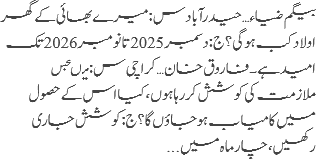 بیگم ضیاء... حیدرآباد س: میرے بھائی کے گھر
اولاد کب ہوگی؟ ج: دسمبر 2025 تا نومبر 2026 تک
امید ہے۔ فاروق خان... کراچی س: میں جس
ملازمت کی کوشش کر رہا ہوں، کیا اس کے حصول
میں کامیاب ہو جاؤں گا؟ ج: کوشش جاری
رکھیں، چار ماہ میں...